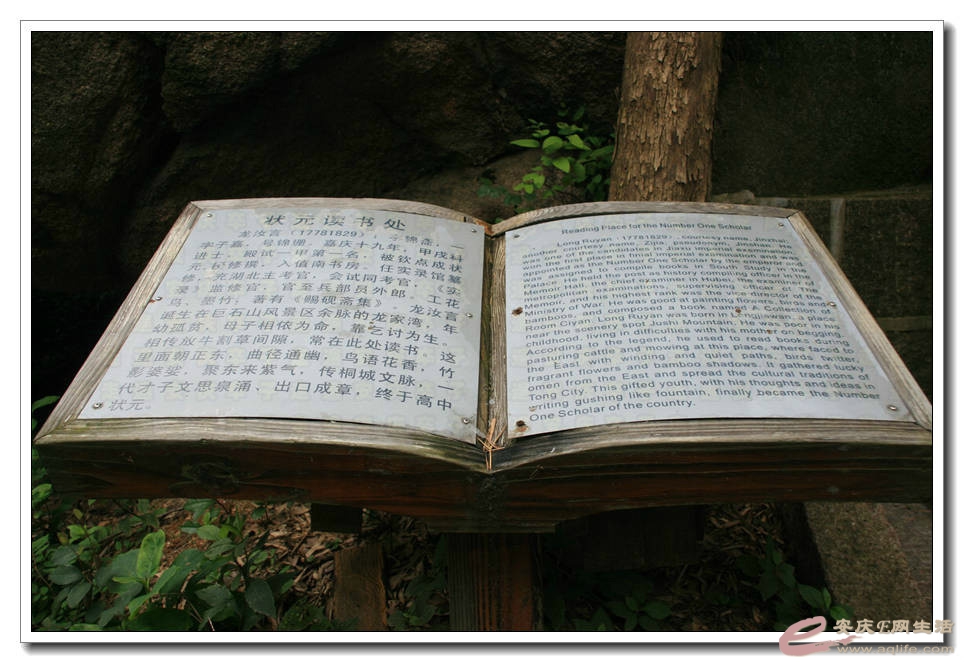 状元读书处
龙汝言（17781829），字锦斋，一
字子嘉，号锦珊。嘉庆十九年，甲戌科
进士，殿试一甲第一名，被钦点成状
元。授修撰，入值南书房。任实录馆纂
修，充湖北主考官，会试同考官，《实
录》监修官，官至兵部员外郎。工花
鸟、墨竹；著有《赐砚斋集》。龙汝言
诞生在巨石山风景区余脉的龙家湾，年
幼孤贫，母子相依为命，靠乞讨为生。
相传放牛割草间隙，常在此处读书。这
里面朝正东，曲径通幽，鸟语花香，竹
影婆娑，聚东来紫气，传桐城文脉，一
代才子文思泉涌、出口成章，终于高中
状元。
Reading Place for the Number One Scholar
Long Ruyan (17781829), courtesy name, Jinzhai,
another courtesy name, Zijia, pseudonym, Jinshan. He
was one of the graduates in Jiaxu imperial examination
won the first place in final imperial examination and was
appointed as the Number One Scholar by the emperor and
was assigned to compile books in South Study in the
Palace. He held the post as history compiling officer in the
Memoir Hall, the chief examiner in Hubei, the examiner of
metropolitan examinations, supervising officer of The
Memoir, and his highest rank was the vice director of the
Ministry of War. He was good at painting flowers, birds and
bamboos, and composed a book named A Collection of
Room Ciyan. Long Ruyan was born in Longjiawan, a place
near the scenery spot Jushi Mountain. He was poor in his
childhood, living in difficulties with his mother on begging.
According to the legend, he used to read books during
pasturing cattle and mowing at this place, where faced to
the East with winding and quiet paths, birds twitter,
fragrant flowers and bamboo shadows. It gathered lucky
omen from the East and spread the cultural traditions of
Tong City. This gifted youth, with his thoughts and ideas in
writing gushing like fountain, finally became the Number
One Scholar of the country.
安庆E网生活
www.aqlife.com